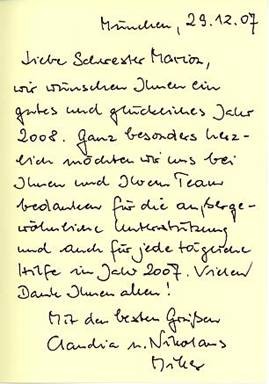 München, 29.12.07
Liebe Schwester Marion,
wir wünschen Ihnen ein
gutes und glückliches Jahr
2008. Ganz besonders herz-
lich möchten wir uns bei
Ihnen und Ihrem Team
bedanken für die außerge-
wöhnliche Unterstützung
und auch für jede tägliche
Hilfe im Jahr 2007. Vielen
Dank Ihnen allen!
Mit den besten Grüßen
Claudia u. Nikolaus